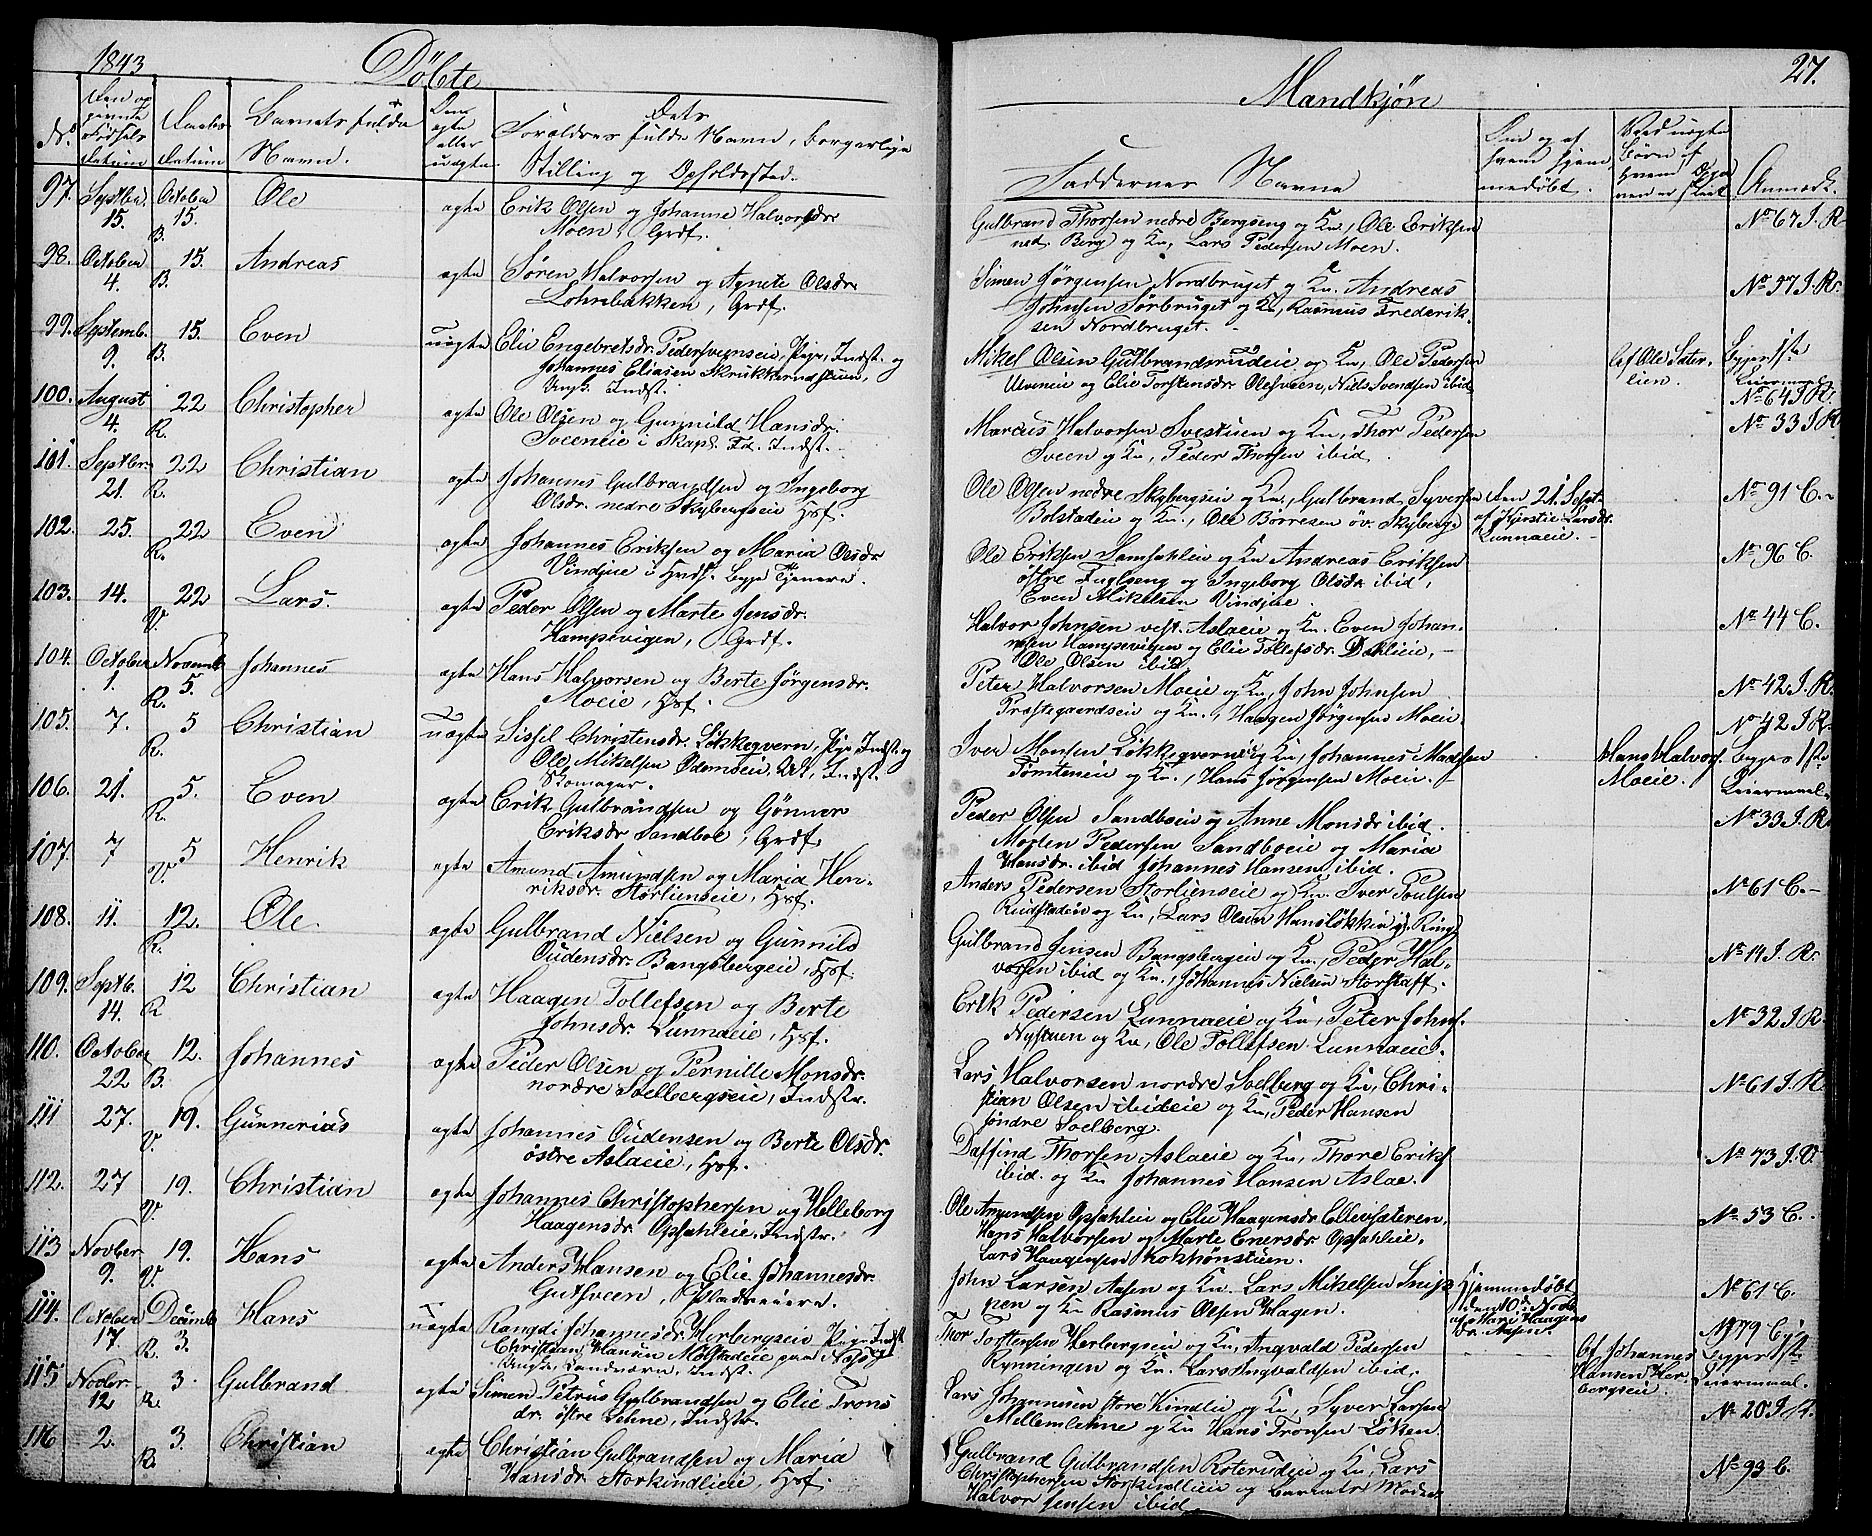 1843
Döbte
Mandkjön
27.
No.
Den op
givne
Födsels
Datum
Daabs
Datum
Barnets fulde
Navn.
Om
ægte
eller
uægte
Dets
Forældres fulde Navn, borgerlige
Stilling og Opholdssted.
Faddernes Navne
Om og af
hvem hjem
medöbt.
Ved uægte
Börn af
hvem
Anmærk.
97. Septbr. 15. October 15. B. Ole ægte Erik Olsen og Johanne Halvorsdr.
Moen, Grdf.
Gulbrand Thorsen nedre Bergseng og Kn., Ole Eriksen
ned. Berg og Kn., Lars Pedersen Moen.
No 67 J. R.
98. October 4. 15. B. Andreas ægte Sören Halvorsen og Agnete Olsdr.
Lohnebakken, Grdf.
Simen Jörgensen Nordbruget og K. Andreas
Johnsen Sörbruget og Kn, Rasmus Frederik-
sen Nordbruget.
No 97 J. R.
99. Septemb. 9. 15. B. Even uægte Elie Engebretsdr. Pedersveenseie, Pige, Indst. og
Johannes Eliasen Skrukkerudstuen,
Ungk. Indst.
Mikel Olsen Gulbrandsrudeie og Kn, Ole Pedersen
Ulveneie og Elie Torstensdr. Olesveen, Nils Svendsen ibid
Af Ole Sater-
lien.
Begges 1ste
Leiermaal
No 64 J R.
100. August 4. 22 R. Christopher ægte Ole Olsen og Gunnild Hansdr.
Sveeneie i Skapl. Fd. Indst.
Marcus Halvorsen Svestuen og Kn, Thor Pedersen
Sveen og Kn, Peder Thorsen ibid.
No 33 J R
101. Septbr. 21. 22 R. Christian ægte Johannes Gulbrandsen og Ingeborg
Olsdr. nedre Skybergseie Hsf.
Ole Olsen nedre Skybergseie og Kn., Gulbrand Syversen
Bolstadeie og Kn., Ole Börresen öv. Skyberg
Den 21. Sept.
af Kjerstie Larsdr.
Lunnaeie.
No 91 C.
102. 25. 22 R. Even ægte Johannes Eriksen og Maria Olsdr
Vindjue i Hrds. begge Tjenere.
Ole Eriksen Samsahleie og Kn Andreas Eriksen
östre Fuglseng og Ingeborg Olsdr ibid,
Even Mikelsen Vindjue.
No 96 C.
103. 14. 22 V. Lars. ægte Peder Olsen og Marte Jensdr.
Hampevigen, Grdf.
Halvor Johnsen vest. Aslaeie og Kn. Even Johan-
nesen Hampevigen og Elie Tollefsdr. Dahlieie,
Ole Olsen ibid.
No 44 C.
104. October 1. Novemb 5. R. Johannes ægte Hans Halvorsen og Berte Jörgensdr.
Moeie, Hsf.
Peter Halvorsen Moeie og Kn, John Johnsen
Præstegaardseie og Kn., Haagen Jörgensen Moeie.
No 42 J. R.
105. 7. 5 R. Christian uægte Sissel Christensdr. Lökkeqvern, Pige, Indst. og
Ole Mikelsen Odemseie Ukl., Indst.
Skomager.
Iver Monsen Lökkeqverneie og Kn, Johannes Madsen
Tömteneie og Kn., Hans Jörgensen Moeie.
Hans Halvors.
Moeie.
No 42 J R
begges 1ste
Leiermaal
106. 21. 5. R. Even ægte Erik Gulbrandsen og Gönner
Eriksdr Sandboe, Grdf.
Peder Olsen Sandboeie og Anne Monsdr ibid.
Morten Pedersen Sandboeie og Maria
Hansdr. ibid Johannes Hansen ibid.
No 33 J. R.
107. 7 5 V. Henrik ægte Amund Amundsen og Maria Hen-
riksdr. Störlienseie, Hsf.
Anders Pedersen Storlienseie og Kn. Iver Poulsen
Rudstadeie og Kn, Lars Olsen Hanslökken i Ring.
No 61 C.
108. 11. 12. R. Ole ægte Gulbrand Nielsen og Gunnild
Oudensdr. Bangsbergeie, Hsf.
Gulbrand Jensen Bangsbergeie og Kn., Peder Hal-
vorsen ibid og Kn., Johannes Nielsen Storstaff.
No 14 J. R.
109. Septb. 14. 12 R. Christian ægte Haagen Tollefsen og Berte
Johnsdr. Lunnaeie, Hsf.
Erik Pedersen Lunnaeie og Kn, Peter Johns.
Nystuen og Kn, Ole Tollefsen Lunnaeie.
No 32 J R.
110. October 22 12. B. Johannes ægte Peder Olsen og Pernille Monsdr.
nordre Soelbergseie, Indst.
Lars Halvorsen nordre Soelberg og Kn, Chri-
stian Olsen ibideie og Kn, Peder Hansen
söndre Soelberg.
No 61 J. R.
111 27. 19. V. Gunnerius ægte Johannes Oudensen og Berte Olsdr.
östre Aslaeie, Hsf.
Daffind Thorsen Aslaeie og Kn, Thore Eriks.
ibid. og Kn Johannes Hansen Aslae.
No 73 J. V.
112. 27 19. V. Christian ægte Johannes Christophersen og Helleborg
Haagensdr. Opsahleie, Indst.
Ole Amundsen Opsahleie og Elie Haagensdr. Ellevsæteren,
Hans Halvorsen og Marte Enersdr. Opsahleie,
Lars Haagensen Kokhönstuen.
No 53 C.
113 Novber 9. 19. V. Hans ægte Anders Hansen og Elie Johannesdr.
Gutsveen, Pladseiere.
John Larsen Aasen og Kn. Lars Mikelsen Snip-
pen og Kn Rasmus Olsen Hagen.
Hjemmedöbt
den 10de Novb.
af Mari Haagens
dr. Aasen.
No 61 C.
114. October 17. Decemb 3. R. Hans uægte Rangdi Johannesdr. Herbergseie Pige Indst
Christian Hansen Mölstadeie paa Næs og
Ungk. Landværn, Indst.
Thor Torstensen Herbergseie og Kn, Ingvald Pedersen
Rynningen og Kn. Lars Ingvaldsen ibid.
Af Johannes
Hansen Her-
bergseie.
No 79 C
begges 1ste
Leiermaal.
115 Novbr 12 3. R. Gulbrand ægte Simen Petrus Gulbrandsen og Elie Trons
dr. östre Lehne, Indst.
Lars Johannesen store Kindlie og Kn, Syver Larsen
Mellemlehne og Kn Hans Tronsen Löken.
No 20 J. R.
116 2. 3. R. Christian ægte Christian Gulbrandsen og Maria
Hansdr. Storkindlieie, Hsf.
Gulbrand Gulbrandsen Roterudeie og Kn, Lars
Christophersen Storkindlieie og Barnets Moder
Halvor Jensen ibid.
No 93 C.